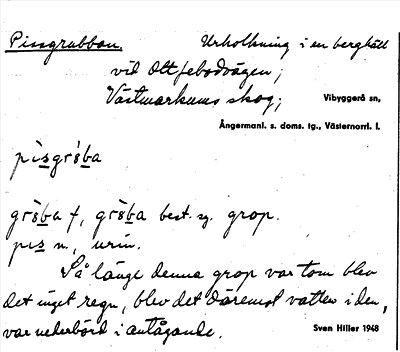 Pissgrubban. Urholkning i en berghäll
vid Ottsebodvägen,
Västmarkums skog;
Vibyggerå sn,
Ångermanl. s. doms. tg., Västernorrl. l.
pi̲sgrȯb̲a
grȯb̲a f, grȯb̲a best. sg. grop.
pi̲s n., urin.
Så länge denna grop var tom blev
det inget regn, blev det däremot vatten i den,
var nederbörd i antågande.
Sven Hiller 1948